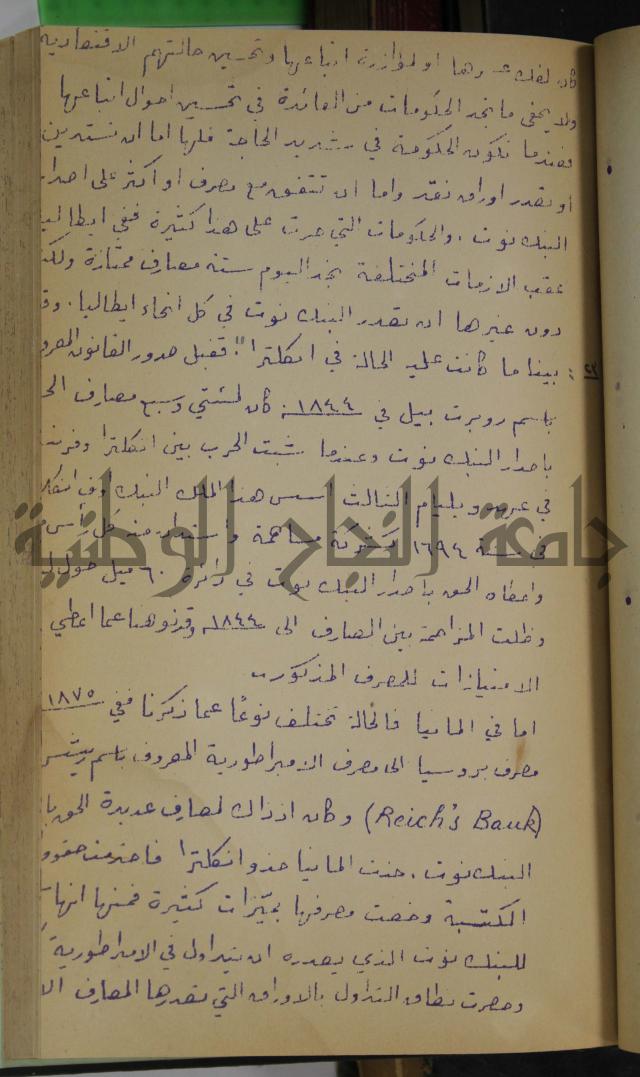 كان لفك عسرها او لمؤازرة اتباعها وتحسين حالتهم الاقتصادية
ولا يخفى ما نجد الحكومات من الفائدة في تحسين احوال اتباعها
فعندما تكون الحكومة في شديد الحاجة فلها اما ان تستدين
او تصدر اوراق نقد واما ان تتفق مع مصرف او اكثر على اصدار
البنك نوت . والحكومات التي جرت على هذا كثيرة ففي ايطاليا
عقب الازمات المختلفة نجد اليوم ستة مصارف ممتازة ولكن
دون غيرها ان تصدر البنك نوت في كل انحاء ايطاليا .
٢٣ : بينا ما كانت عليه الحالة في انكلترا : فقبل صدور القانون المعروف
باسم روبرت بيل في ١٨٤٤ كان لمئتي وسبع مصارف الحق
باصدار البنك نوت وعندما شبت الحرب بين انكلترا وفرنسا
في عهد ويليام الثالث اسس هذا الملك البنك اوف انكلـ
في سنة ١٦٩٤ كشركة مساهمة
جامعة النجاح الوطنية
واعطاه الحق باصدار البنك نوت في دائرة ٦٠ ميل حول
وظلت المزاحمة بين المصارف الى ١٨٤٤ وقد نوهنا عما اعطي
الامتيازات للمصرف المذكور .
اما في المانيا فالحالة تختلف نوعًا عما ذكرنا ففي ١٨٧٥
مصرف بروسيا الى مصرف الامبراطورية المعروف باسم
(Reich's Bank) وكان اذذاك لمصارف عديدة الحق
البنك نوت . حذت المانيا حذو انكلترا فاحترمت حقوق
المكتسبة وخصت مصرفها بميّزات كثيرة فمنها انها
للبنك نوت الذي يصدره ان يتداول في الامبراطورية
وحصرت نطاق التداول بالاوراق التي تصدرها المصارف